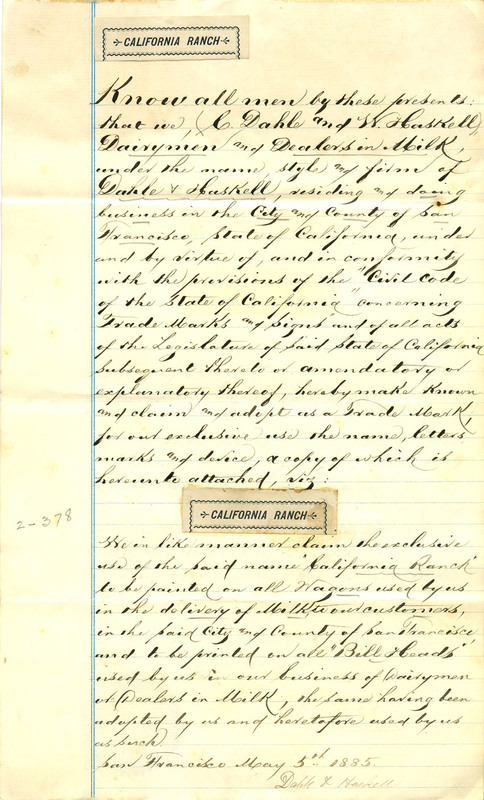 CALIFORNIA RANCH
Know all men by these presents:
that we, C Dahle and W. Haskell,
Dairymen and Dealers in Milk,
under the name, style and firm of
Dahle & Haskell, residing and doing
business in the City and County of San
Francisco, State of California, under
and by virtue of, and in conformity
with the provisions of the "Civil Code
of the State of California" concerning
"Trade Marks and Signs" and of all acts
of the Legislature of said State of California
subsequent thereto or amendatory or
explanatory thereof, hereby make known
and claim and adopt as a Trade Mark,
for our exclusive use the name, letters
marks and device, a copy of which is
hereunto attached, viz:
CALIFORNIA RANCH
2-378
We in like manner claim the exclusive
use of the said name "California Ranch"
to be painted on all Wagons used by us
in the delivery of Milk to our customers,
in the said City and County of San Francisco
and to be printed on all "Bill Heads"
used by us in our business of Dairymen
or Dealers in Milk, the same having been
adopted by us and heretofore used by us
as such.
San Francisco May 5th 1885.
Dahle & Haskell